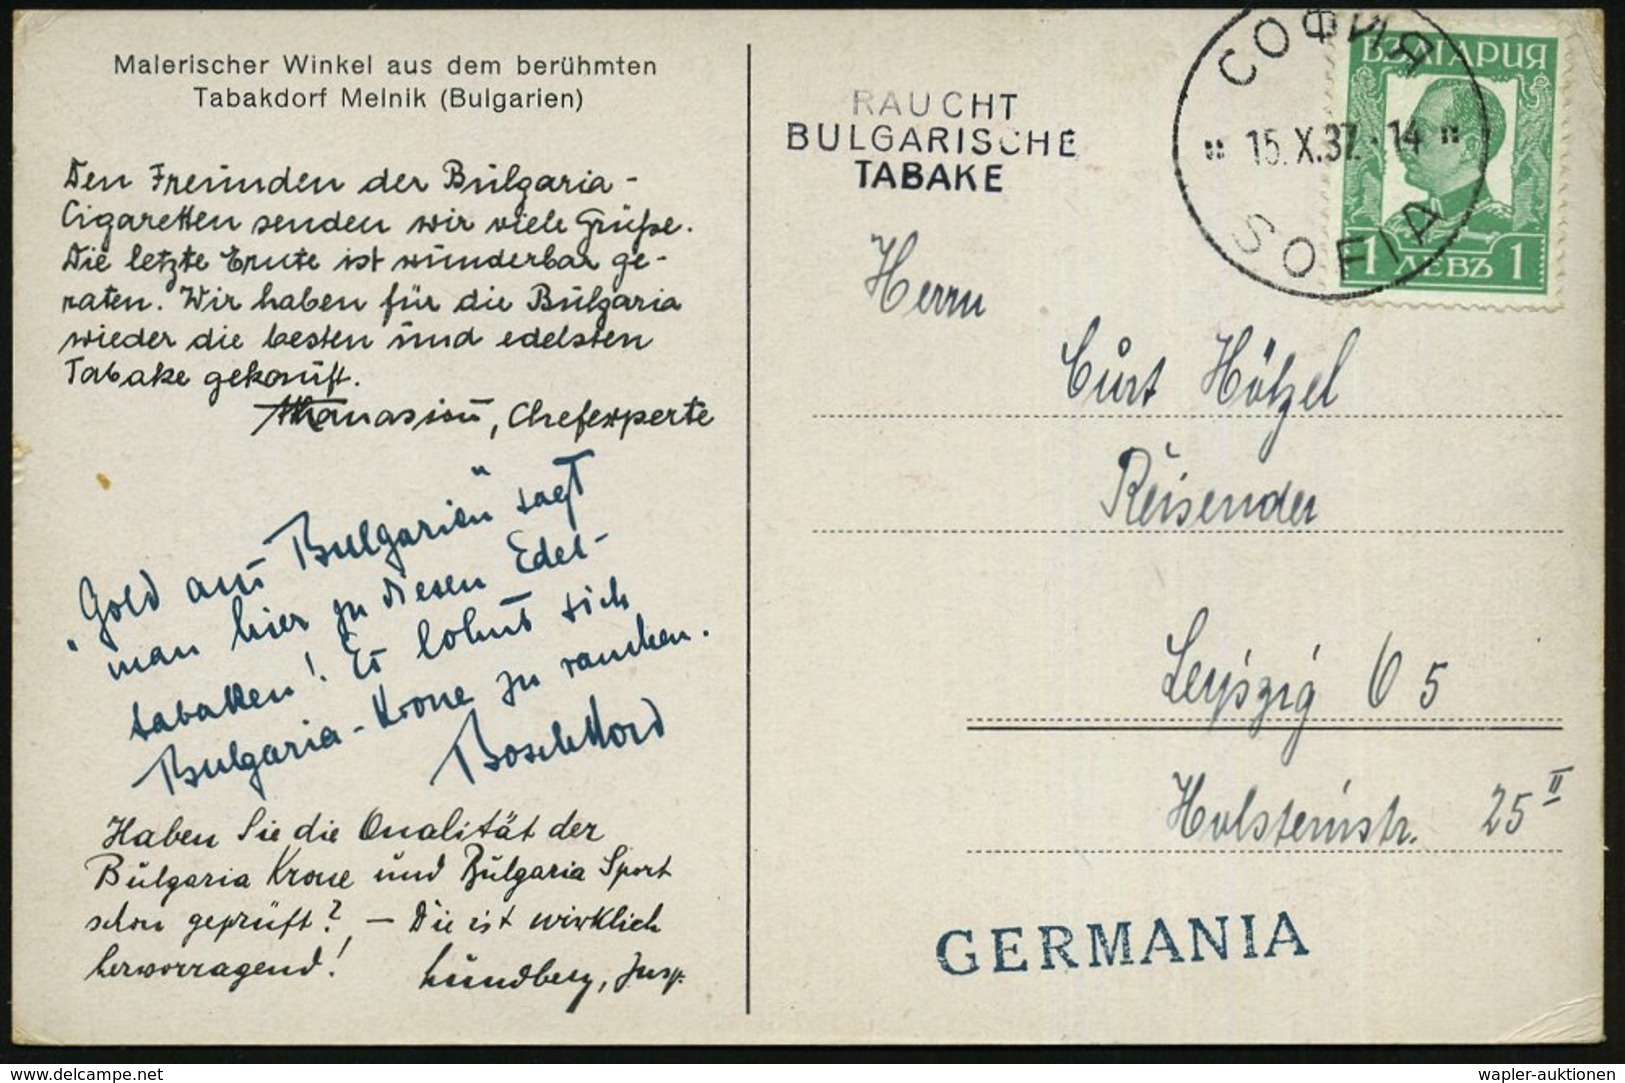 Malerischer Winkel aus dem berühmten
Tabakdorf Melnik (Bulgarien)
Den Freunden der Bulgaria-
Cigaretten senden wir viele Grüße.
Die letzte Ernte ist wunderbar ge-
raten. Wir haben für die Bulgaria
wieder die besten und edelsten
Tabake gekauft.
Athanasiou, Chefexperte
"Gold aus Bulgarien" sagt
man hier zu diesen Edel-
tabakken! Es lohnt sich
Bulgaria-Krone zu rauchen.
Haben Sie die Qualität der
Bulgaria Krone und Bulgaria Sport
schon geprüft? – Die ist wirklich
hervorragend!
Lundberg, Insp.
RAUCHT
BULGARISCHE
TABAKE
СОФИЯ
15.X.37.-14
SOFIA
БЪЛГАРИЯ
1 ЛЕВЪ 1
Herrn
Curt Hötzel
Reisender
Leipzig O 5
Holsteinstr. 25 II
GERMANIA
www.delcampe.net
wapler-auktionen